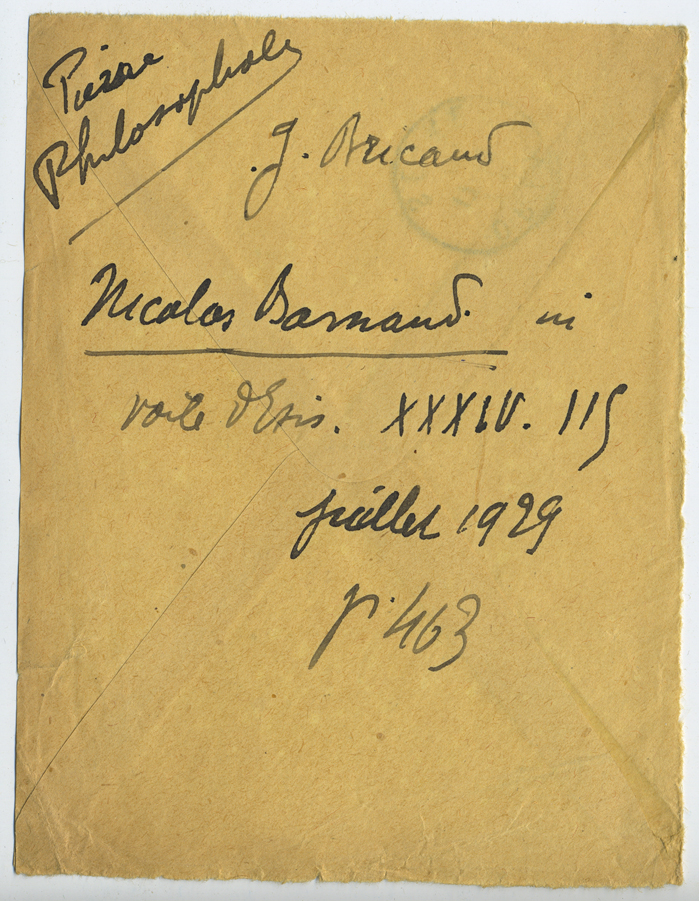 Pierre
Philosophale
J. Bricaud
Nicolas Barnaud in
voile d'Isis. XXXIV. 115
juillet 1929
p. 463